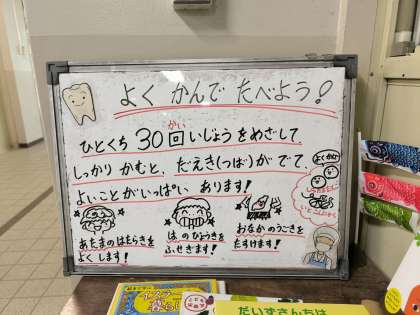 よく かんで たべよう!
かい
ひとくち 30回 いじょう をめざして、
しっかり かむと、だえき(つば)が でて、
よいことが いっぱい あります!
よくかむ
あたまの はたらきを
よく します!
はの びょうきを
ふせぎます!
おなかの うごきを
たすけます!
だいずさんちは